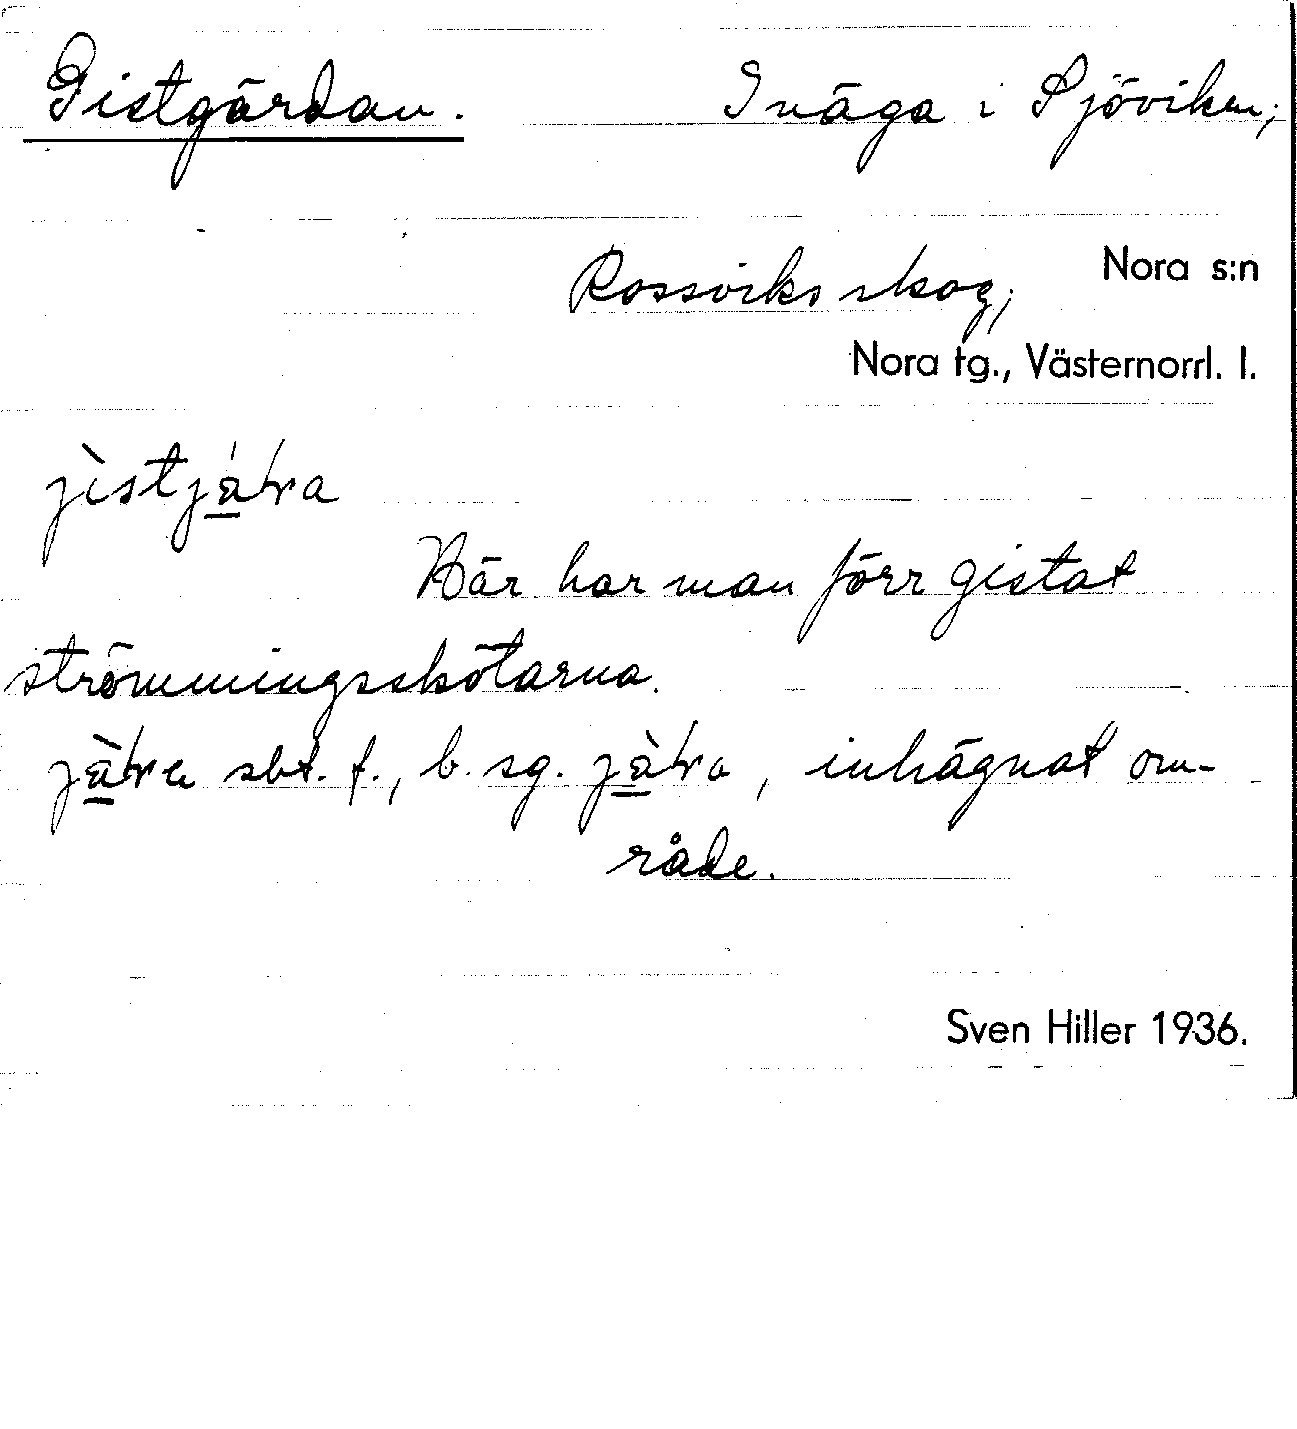 Gistgärdan. Inäga i Sjöviken;
Rossviks skog; Nora s:n
Nora tg., Västernorrl. l.
Här har man förr gistat
strömmingsskötarna.
sbt. f., b. sg. , inhägnat om-
råde.
Sven Hiller 1936.